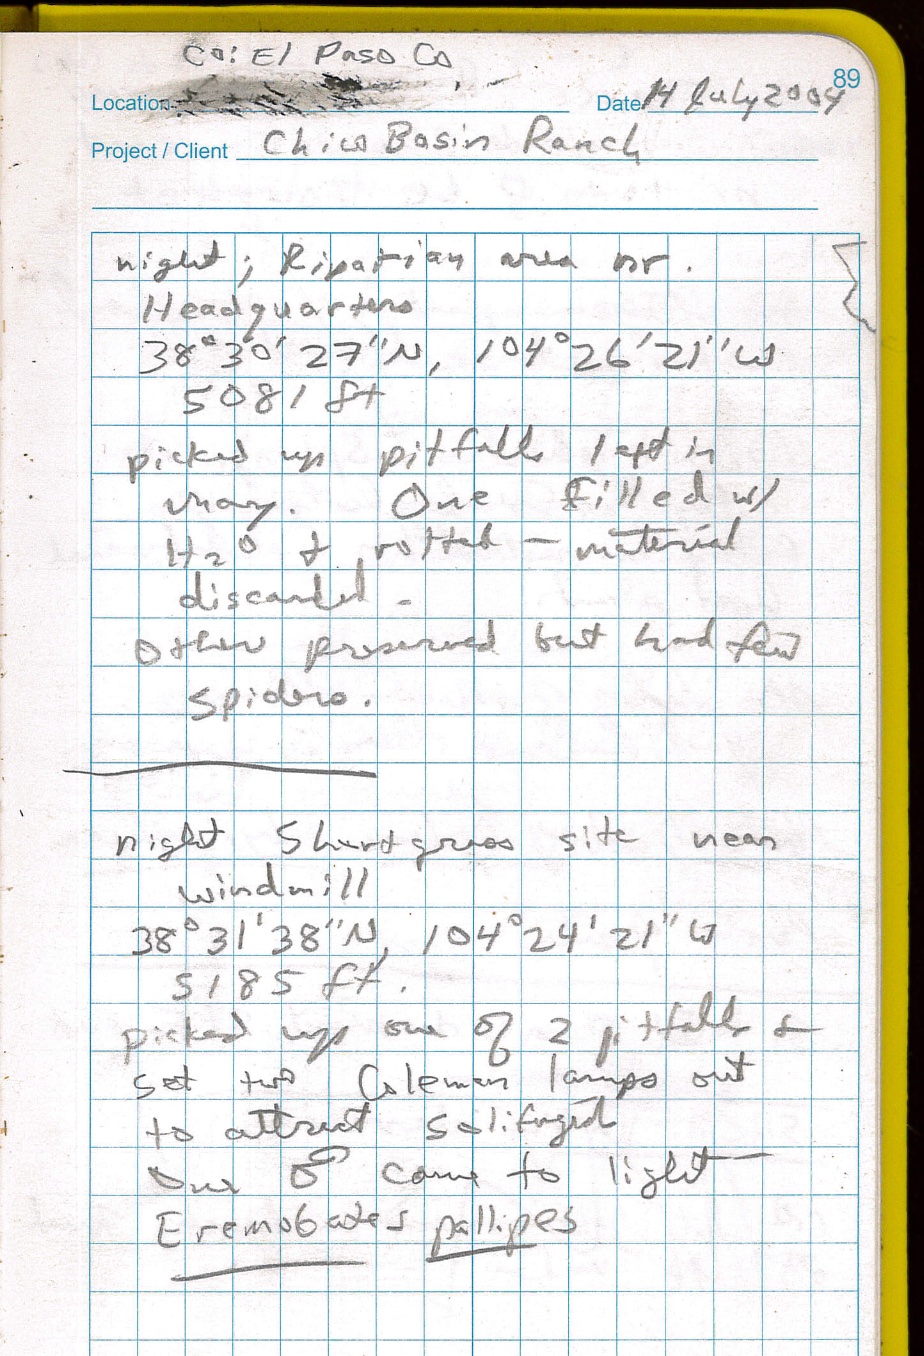 Co: El Paso Co
89
Location
Date 14 July 2004
Project / Client Chico Basin Ranch
night; Riparian area nr.
Headquarters
38°30'27"N, 104°26'21"W
5081 ft
picked up pitfalls left in
may. One filled w/
H2O & rotted – material
discarded.
Other preserved but had few
spiders.
night Shortgrass site near
windmill
38°31'38"N, 104°24'21"W
5185 ft.
picked up one of 2 pitfalls &
set two Coleman lamps out
to attract solifugid
One ♂ came to light —
Eremobates pallipes